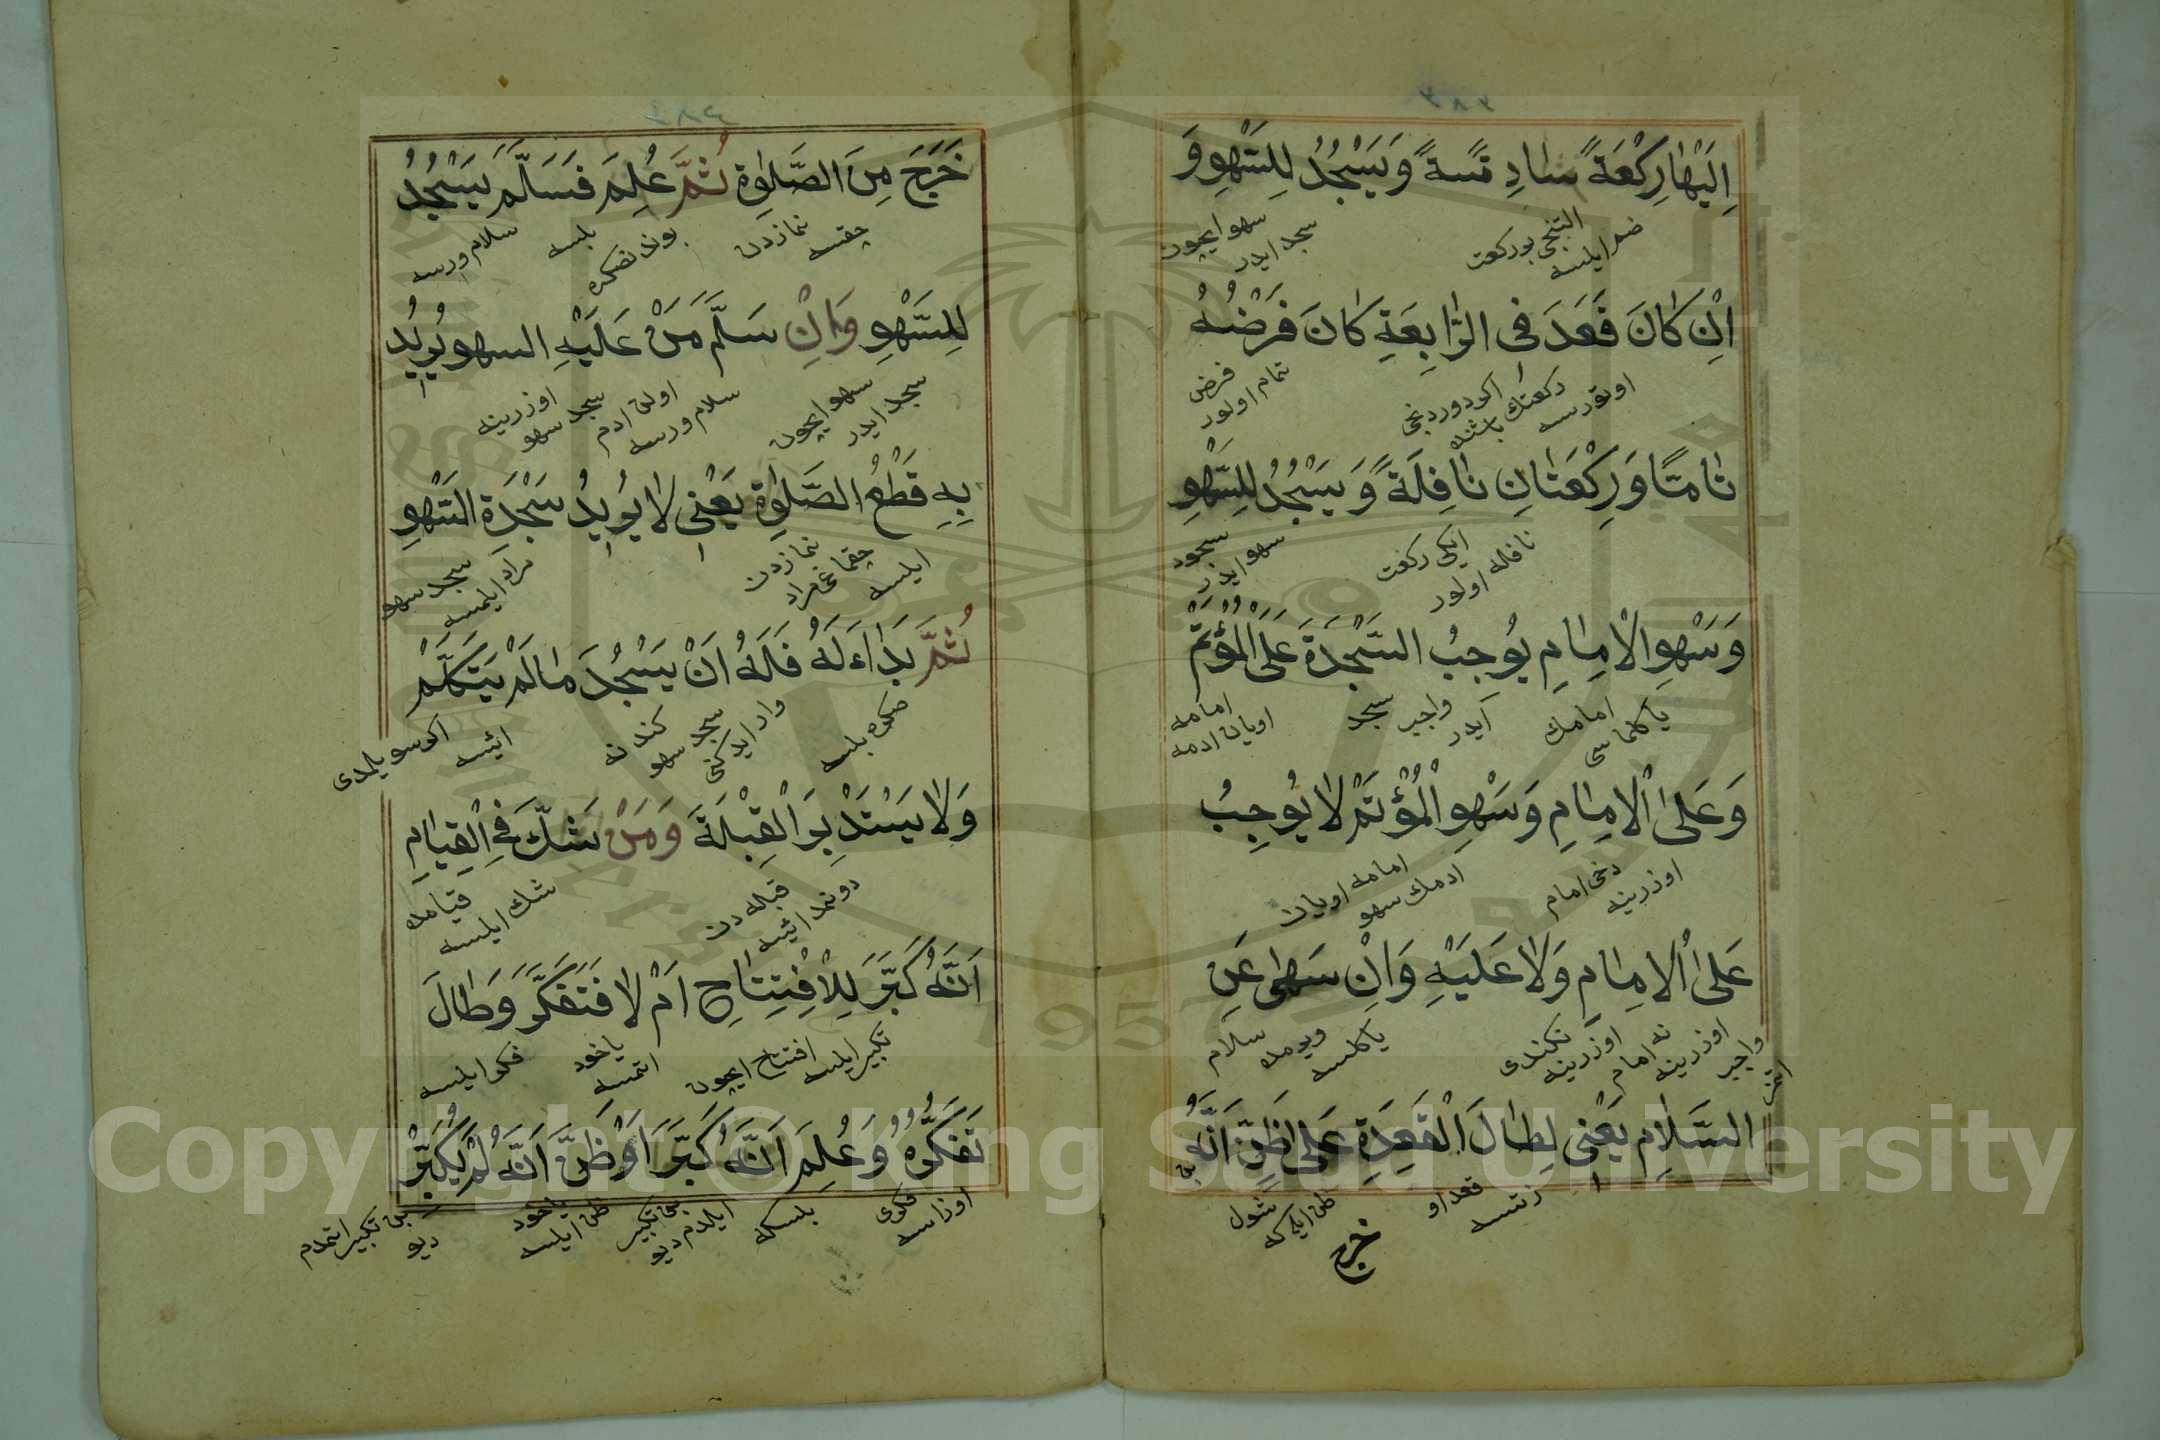 اِلَيْهَا رَكْعَةً سَادِسَةً وَيَسْجُدُ لِلسَّهْوِ وَ
ضم ايلسه التنجى بر ركعت سجد ايدر سهو ايچون
اِنْ كَانَ قَعَدَ فِى الرَّابِعَةِ كَانَ فَرْضُهُ
اوتورسه ركعتك باشنده اكر دوردنجى تمام اولور فرض
تَامًّا وَرَكْعَتَانِ نَافِلَةً وَيَسْجُدُ لِلسَّهْوِ
نافله اولور ايكى ركعت سهو ايدر سجود
وَسَهْوِ الْاِمَامِ يُوجِبُ السَّجْدَةَ عَلَى الْمُؤْتَمِّ
ياكلماسى امامك ايدر واجب سجد اويان ادمه امامه
وَعَلَى الْاِمَامِ وَسَهْوِ الْمُؤْتَمِّ لَا يُوجِبُ
اوزرينه دخى امام ادمك سهو امامه اويان
عَلَى الْاِمَامِ وَلَا عَلَيْهِ وَاِنْ سَهَى عَنِ
واجب اوزرينه نه امام اوزرينه ياكلسه ويرمده سلام
السَّلَامِ يَعْنِى لِطَالَ الْقَعْدَةِ عَلَى ظَنِّ اَنَّهُ
قعد او ظن ايله كه شول
خرج
خَرَجَ مِنَ الصَّلَوةِ ثُمَّ عُلِمَ فَسَلَّمَ يَسْجُدُ
چقسه نمازدن بوندنصكره بلسه سلام ورسه
لِلسَّهْوِ وَاِنْ سَلَّمَ مَنْ عَلَيْهِ السهو يُرِيدُ
سجد ايدر سهو ايچون سلام ورسه اولن ادم سجد سهو اوزرينه
بِهِ قَطْعُ الصَّلَوةِ يَعْنِى لَا يُرِيدُ سَجْدَةِ السَّهْوِ
ايلسه چقماغى مراد نمازدن مراد ايلمسه سجد سهو
ثُمَّ بَدَاءَ لَهُ فَلَهُ اَنْ يَسْجُدَ مَا لَمْ يَتَكَلَّمْ
صكره بلسه وارد سجد سهو كندنه اتسه اكر سويلمدى
وَلَا يَسْتَدْبِرَ الْقِبْلَةَ وَمَنْ شَكَّ فِى الْقِيَامِ
دونمد اتسه قبله دن شك ايلسه قيامده
اَنَّهُ كَبَّرَ لِلْاِفْتِتَاحِ اَمْ لَا فَتَفَكَّرَ وَطَالَ
تكبير ايلسه افتتاح ايچون ياخود اتمسه فكر ايلسه
تَفَكُّرُهُ وَعُلِمَ اَنَّهُ كَبَّرَ اَوْ ظَنَّ اَنَّهُ لَمْ يُكَبِّرْ
اوزاسه فكرى بلسكه ايلدم ديو بن تكبير ظن ايلسه ياخود بن تكبير اتمدم ديو
Copy right © King Saud University
1957